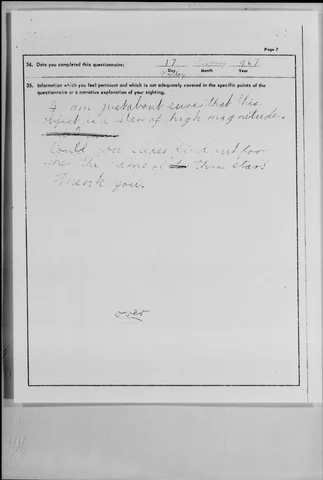 Page 7
34. Date you completed this questionnaire: 17 967
Day Month Year
Friday
35. Information which you feel pertinent and which is not adequately covered in the specific points of the
questionnaire or a narrative explanation of your sighting.
I am just about sure that this
object is a star of high magnitude.
Could you please find out for
me the name of this star?
Thank you.
over